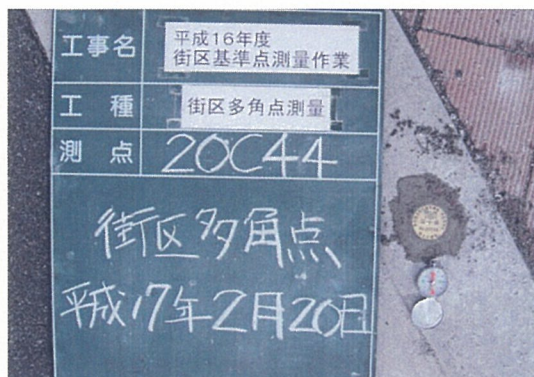 工事名
平成16年度
街区基準点測量作業
工 種
街区多角点測量
測 点
20C44
街区多角点
平成17年2月20日